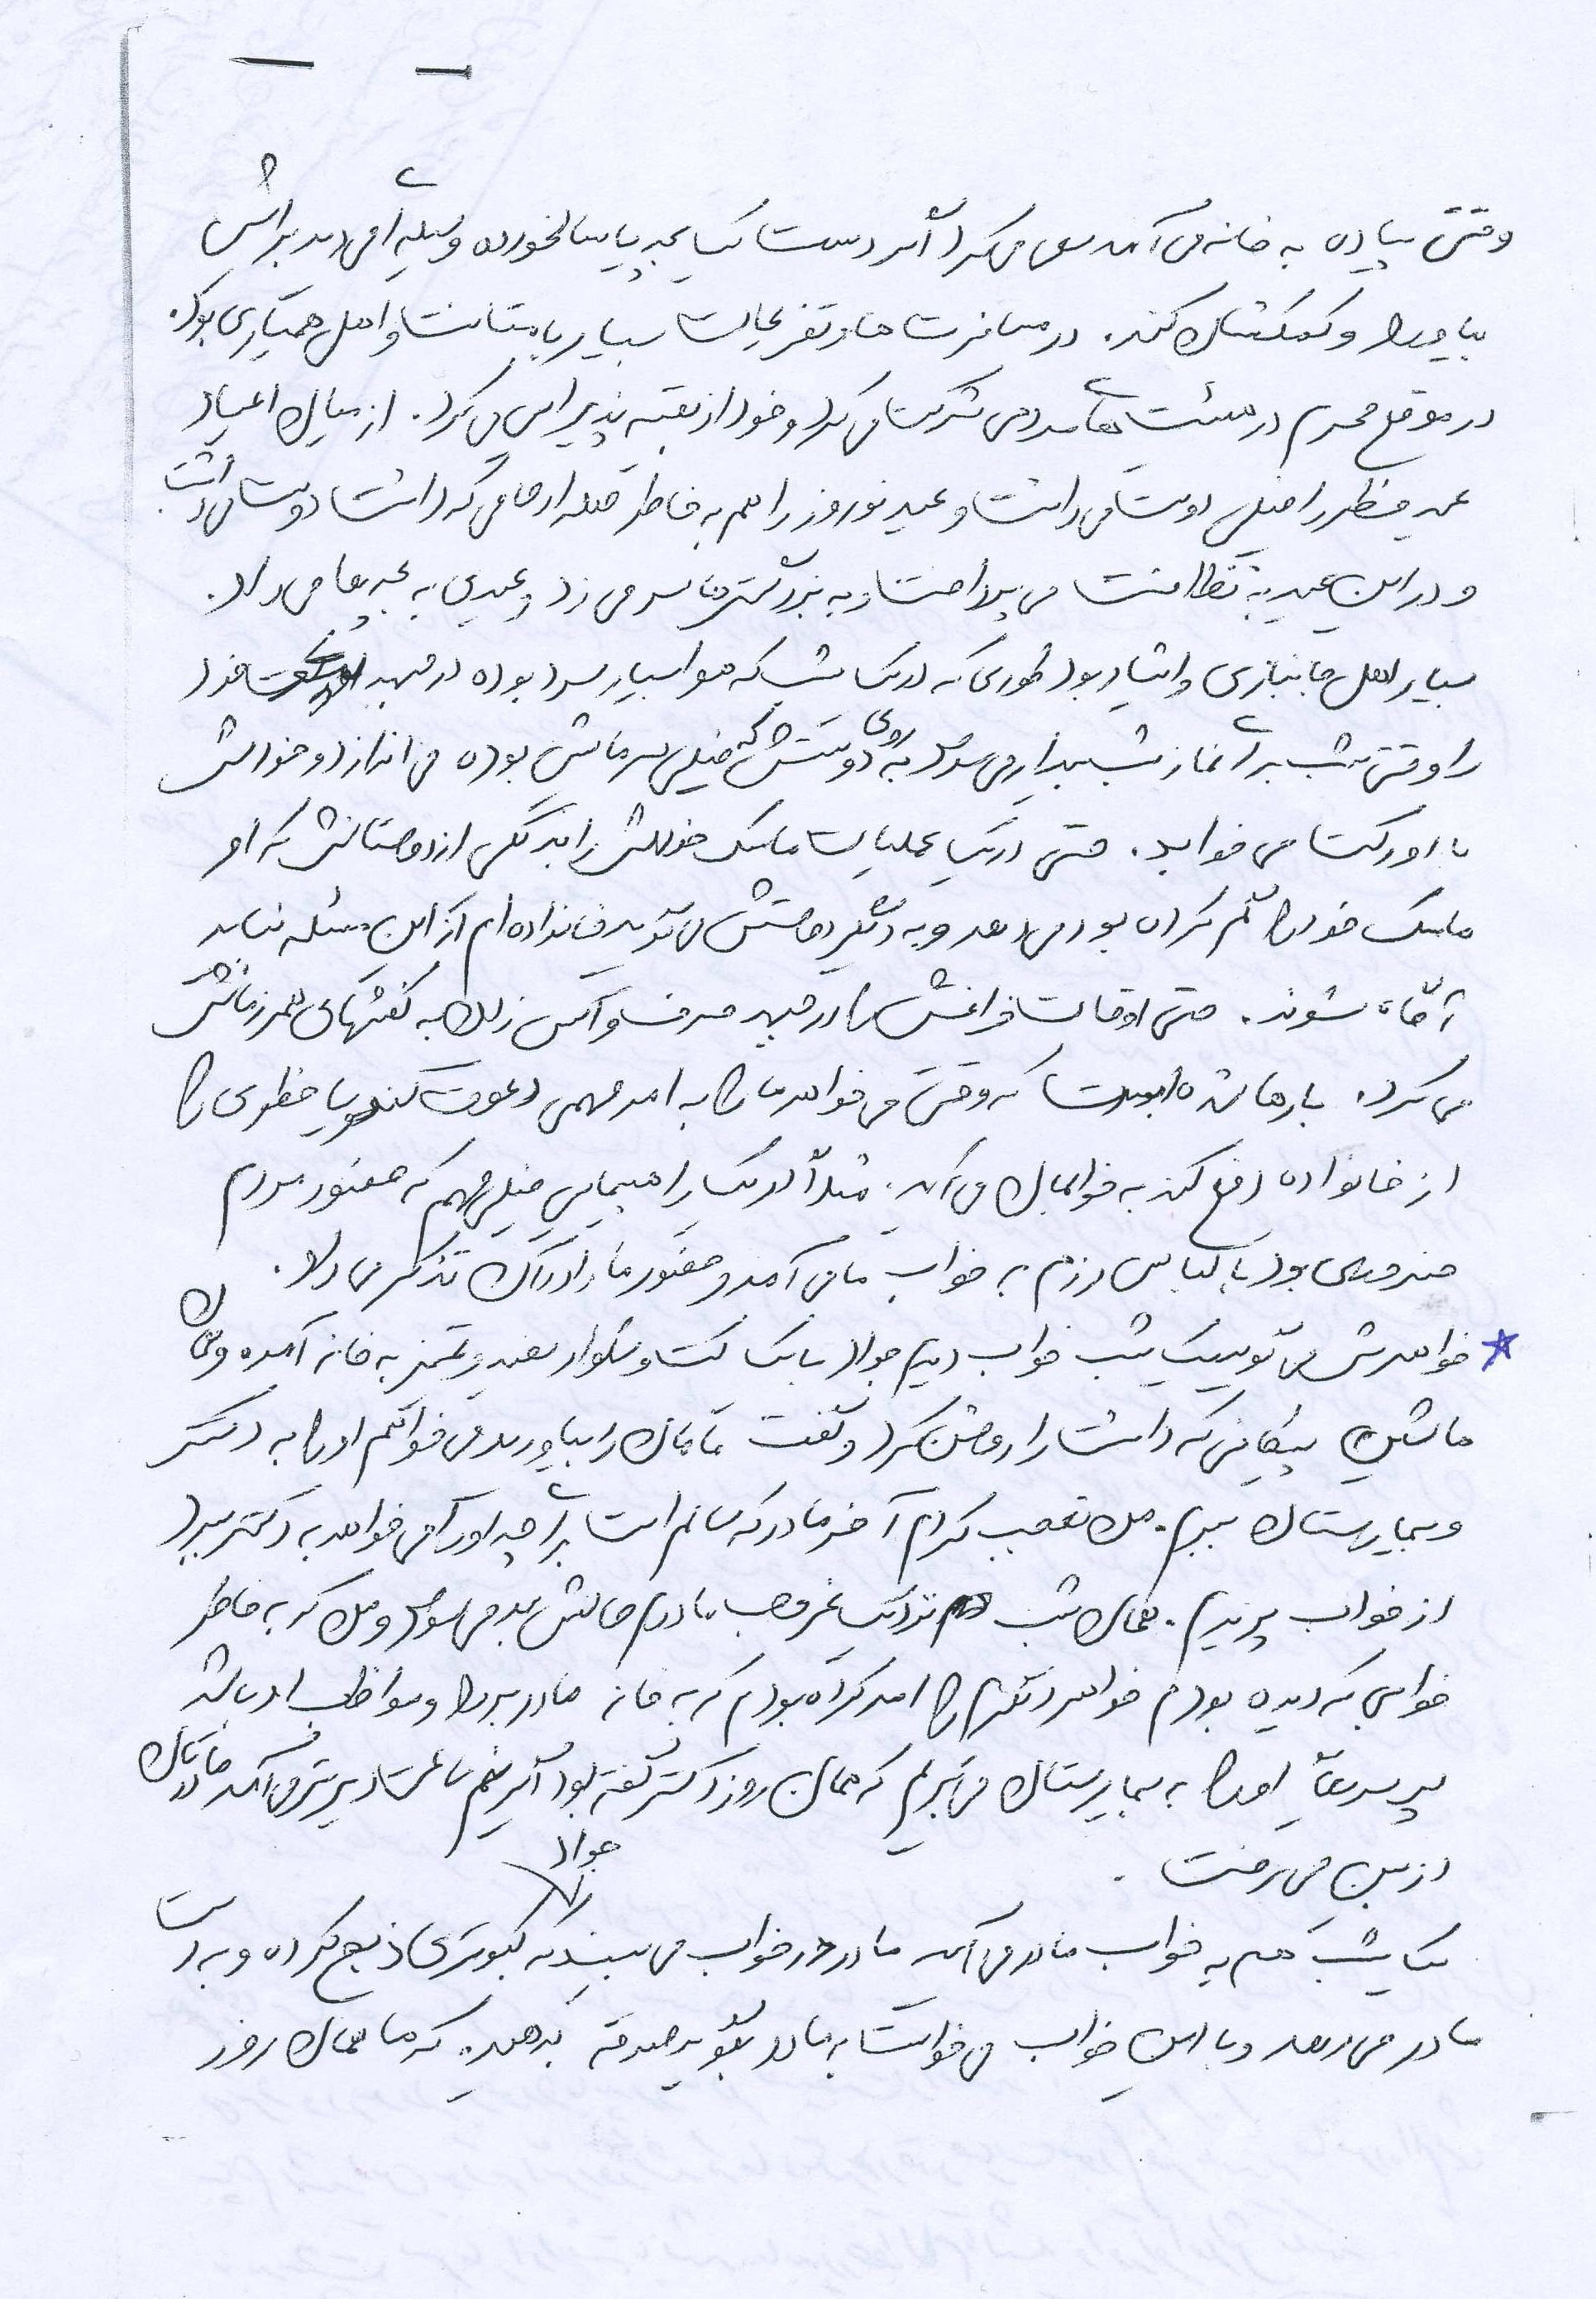 وقتی پیاده به خانه می آمد سعی می کرد اگر دست یک بچه یا سالخورده وسیله ای می دید برایش
بیاورد و کمکشان کند. در مسافرت ها و تفریحات بسیار با متانت و اهل همیاری بود.
در موقع محرم در هیئت های مردمی شرکت می کرد و خود از بقیه پذیرایی می کرد. از میان اعیاد
عید فطر را خیلی دوست می داشت و عید نوروز را هم به خاطر صله ارحامی که داشت دوست می داشت
و در این عید به نظافت می پرداخت و به بزرگترها سر می زد و عیدی به بچه ها می داد.
بسیار اهل جانبازی و ایثار بود طوری که در یک شب که هوا بسیار سرد بوده در جبهه خود
را وقتی شب برای نماز شب بیدار می شود به روی دوستش که خیلی سرمایی بوده می اندازد و خودش
با اورکت می خوابد. حتی در یک عملیات ماسک خودش را به یکی از دوستانش که او
ماسک خود را گم کرده بود می دهد و به دیگر دوستش می گوید خانواده ام از این مسئله نباید
آگاه شوند. حتی اوقات فراغتش را در جبهه صرف واکس زدن به کفشهای همرزمانش
می کرد. بارها شده است که وقتی می خواهد ما را به امر مهمی دعوت کند و یا خطری را
از خانواده دفع کند به خوابمان می آید. مثلاً در یک راهپیمایی خیلی مهم که حضور مردم
ضروری بود با لباس رزم به خواب ما می آمد و حضور ما را در آن تذکر می داد.
* خواهرش می گوید یک شب خواب دیدم جواد با یک کت و شلوار سفید و تمیز به خانه آمده و همان
ماشین پیکانی که داشت را روشن کرد و گفت مامان را بیاورید می خواهم او را به دکتر
و بیمارستان ببرم. من تعجب کردم آخر مادر که سالم است برای چه او را می خواهد به دکتر ببرد
از خواب پریدم. همان شب نزدیک غروب مادرم حالش بد می شود و من که به خاطر
خوابی که دیده بودم خواهر دیگرم را امر کرده بودم که به خانه مادر برود و مواظب او باشد
پس سریعاً او را به بیمارستان می بریم که همان روز دکتر گفته بود اگر نیم ساعت دیرتر می آمد مادرتان
از بین می رفت.
یک شب هم به خواب مادر می آید مادر در خواب می بیند که جواد کبوتری را ذبح کرده و به دست
مادر می دهد و با این خواب می خواست به مادر بگوید صدقه بدهید. که ما همان روز